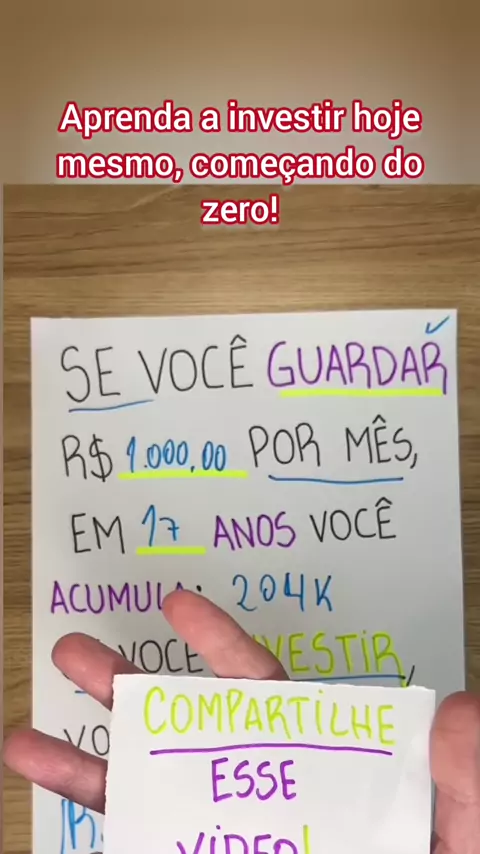 Aprenda a investir hoje
mesmo, começando do
zero!
SE VOCÊ GUARDAR
R$ 1.000,00 POR MÊS,
EM 17 ANOS VOCÊ
ACUMULA: 204K
VOCÊ INVESTIR,
COMPARTILHE
ESSE
VÍDEO!